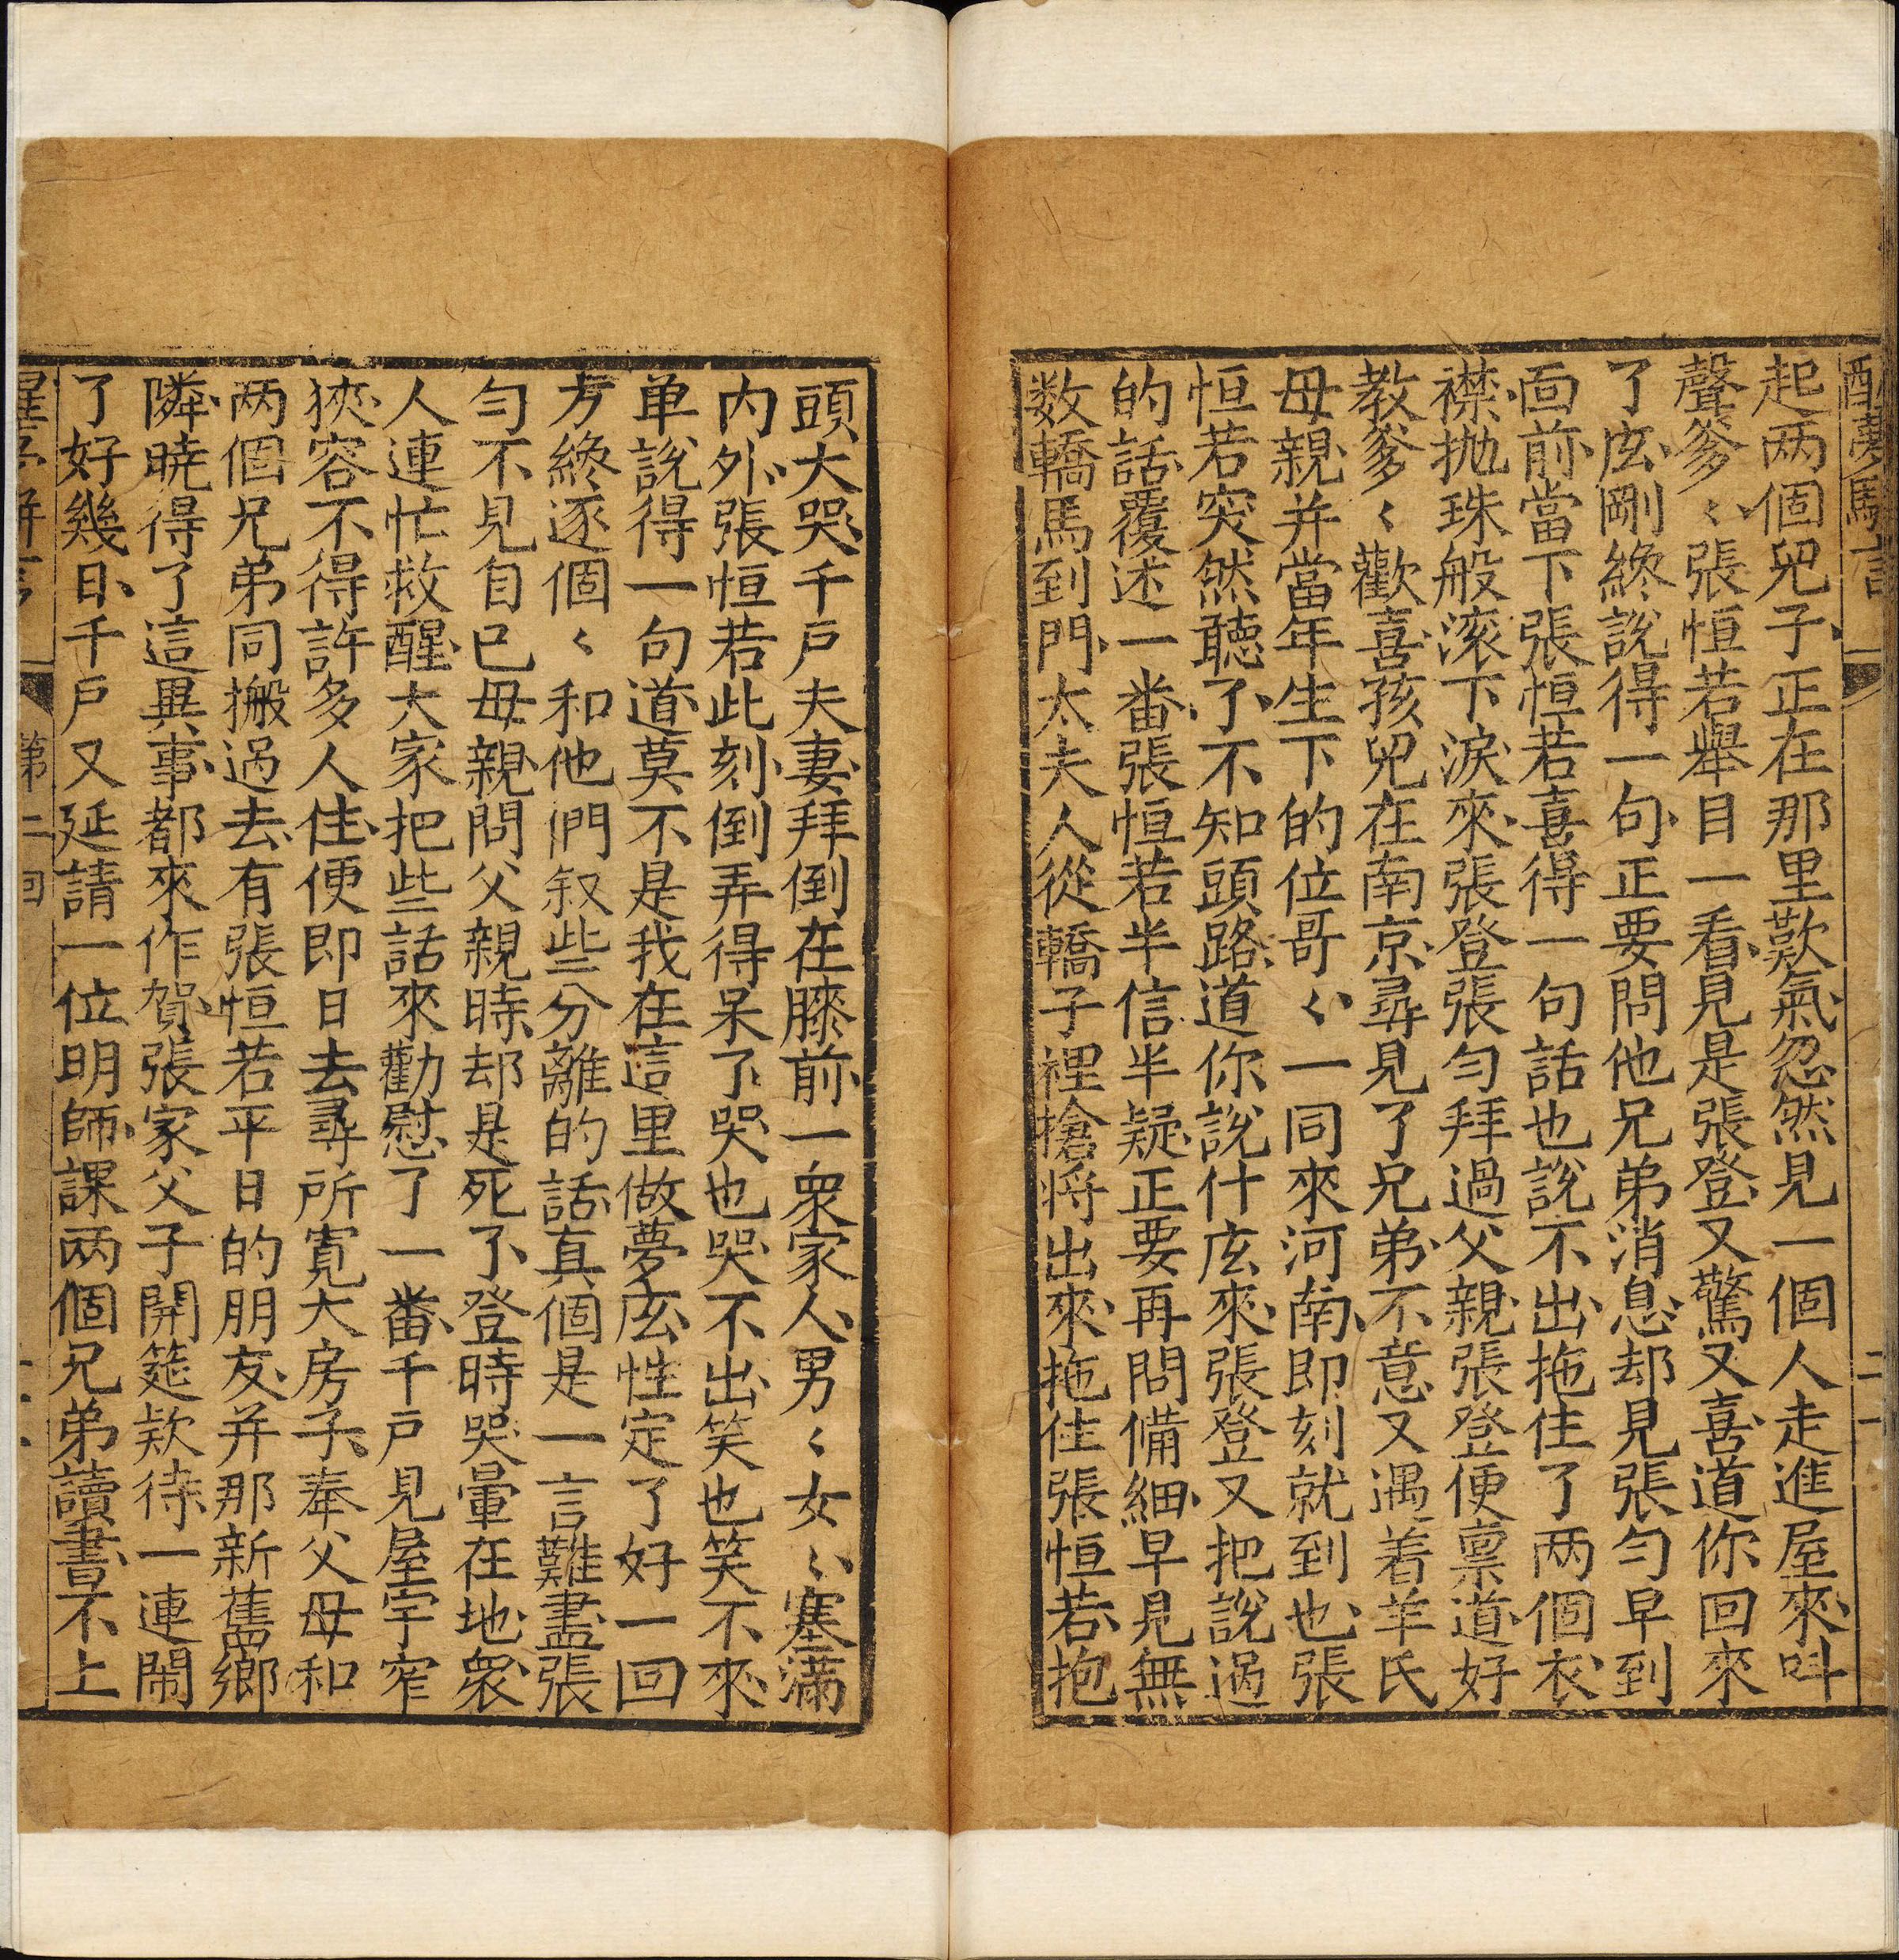 醒夢駢言
二十一
起两個兒子、正在那里歎氣、忽然見一個人走進屋來、叫
聲爹〻、張恒若舉目一看、見是張登、又驚又喜、道你回來
了庅、剛終說得一句、正要問他兄弟消息、却見張勻早到
面前、當下張恒若喜得一句話也說不出、拖住了两個衣
襟、抛珠般滚下淚來、張登張勻拜過父親、張登便禀道、好
教爹〻歡喜、孩兒在南京、尋見了兄弟、不意又遇着羊氏
母親、并當年生下的位哥〻、一同來河南、即刻就到也、張
恒若突然聽了、不知頭路、道你說什庅來、張登又把說過
的話、覆述一番、張恒若半信半疑、正要再問備細、早見無
数轎馬到門、太夫人從轎子裡搶将出來、拖住張恒若、抱
頭大哭、千戶夫妻、拜倒在膝前、一衆家人、男〻女〻、塞滿
内外、張恒若此刻、倒弄得呆了、哭也哭不出、笑也笑不來、
单說得一句道、莫不是我在這里做夢庅、性定了好一回
方終逐個〻和他們叙些分離的話、真個是一言難盡、張
勻不見自已母親、問父親時、却是死了、登時哭暈在地、衆
人連忙救醒、大家把些話來勸慰了一番、千戶見屋宇窄
狹、容不得許多人住、便即日去尋所寬大房子、奉父母和
两個兄弟同搬過去、有張恒若平日的朋友、并那新舊鄉
隣、曉得了這異事、都來作賀、張家父子開筵欵待、一連鬧
了好幾日、千戶又延請一位明師、課两個兄弟讀書、不上
第二回